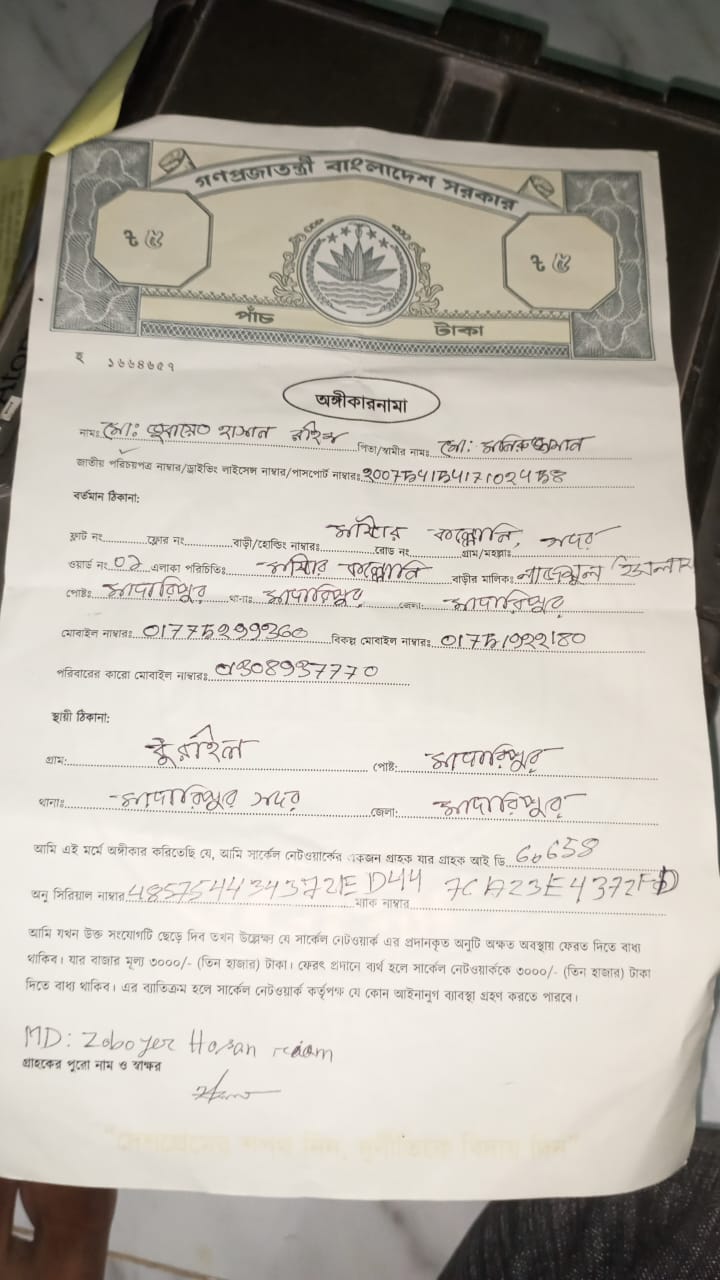 গণপ্রজাতন্ত্রী বাংলাদেশ সরকার
৳ ৫ ৳ ৫
পাঁচ টাকা
হ ১৬৬৪৬৫৭
অঙ্গীকারনামা
নামঃ মো: জুবায়েত হাসান পিতা/স্বামীর নামঃ মো: মনিরুজ্জামান
জাতীয় পরিচয়পত্র নাম্বার/ড্রাইভিং লাইসেন্স নাম্বার/পাসপোর্ট নাম্বারঃ
বর্তমান ঠিকানা:
ফ্লাট নং ফ্লোর নং বাড়ী/হোল্ডিং নাম্বারঃ মাস্টার কলোনি, সদর রোড নং গ্রাম/মহল্লাঃ
ওয়ার্ড নং ০২ এলাকা পরিচিতিঃ মাস্টার কলোনি বাড়ীর মালিকঃ নাজমুল ইসলাম
পোষ্টঃ মাদারিপুর থানাঃ মাদারিপুর জেলা: মাদারিপুর
মোবাইল নাম্বারঃ 01775299360 বিকল্প মোবাইল নাম্বারঃ 01751922180
পরিবারের কারো মোবাইল নাম্বারঃ 01308937770
স্থায়ী ঠিকানা:
গ্রাম: পোষ্ট: মাদারিপুর
থানাঃ মাদারিপুর সদর জেলা: মাদারিপুর
আমি এই মর্মে অঙ্গীকার করিতেছি যে, আমি সার্কেল নেটওয়ার্কের একজন গ্রাহক যার গ্রাহক আই ডি 60658
অনু সিরিয়াল নাম্বার 485754434372ED44 ম্যাক নাম্বার
আমি যখন উক্ত সংযোগটি ছেড়ে দিব তখন উল্লেক্ষ্য যে সার্কেল নেটওয়ার্ক এর প্রদানকৃত অনুটি অক্ষত অবস্থায় ফেরত দিতে বাধ্য
থাকিব। যার বাজার মূল্য ৩০০০/- (তিন হাজার) টাকা। ফেরৎ প্রদানে ব্যর্থ হলে সার্কেল নেটওয়ার্ককে ৩০০০/- (তিন হাজার) টাকা
দিতে বাধ্য থাকিব। এর ব্যতিক্রম হলে সার্কেল নেটওয়ার্ক কর্তৃপক্ষ যে কোন আইনানুগ ব্যবস্থা গ্রহণ করতে পারবে।
MD: Zoboyer Hasan
গ্রাহকের পুরো নাম ও স্বাক্ষর